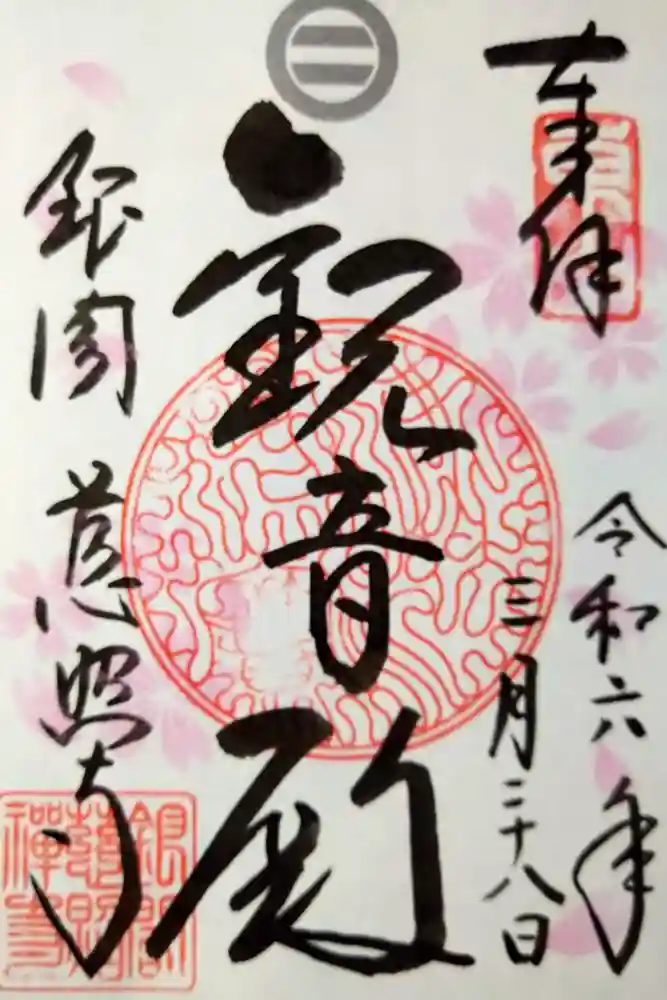 奉拝
令和六年
三月二十八日
観音殿
銀閣
慈照寺
銀閣
慈照
禅寺